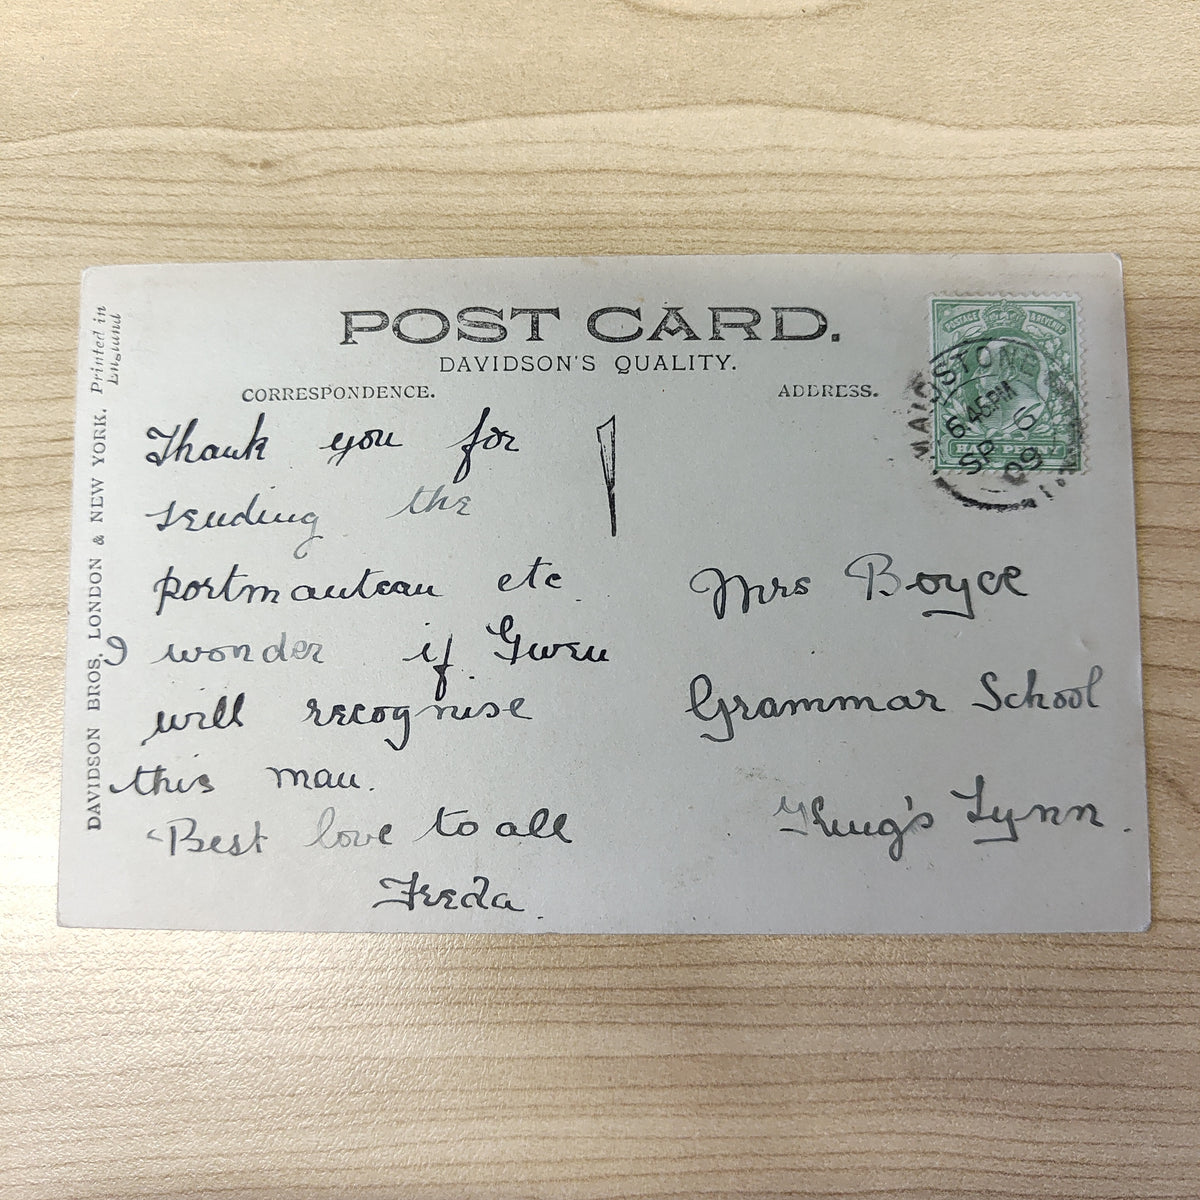 POST CARD.
DAVIDSON'S QUALITY.
CORRESPONDENCE.
ADDRESS.
Thank you for
sending the
portmanteau etc.
I wonder if Gwen
will recognise
this man.
Best love to all
Freda.
Mrs Boyce
Grammar School
King's Lynn.
POSTAGE REVENUE
HALF PENNY
MAIDSTONE
6 45PM
SP 6
09
DAVIDSON BROS. LONDON & NEW YORK. Printed in
England